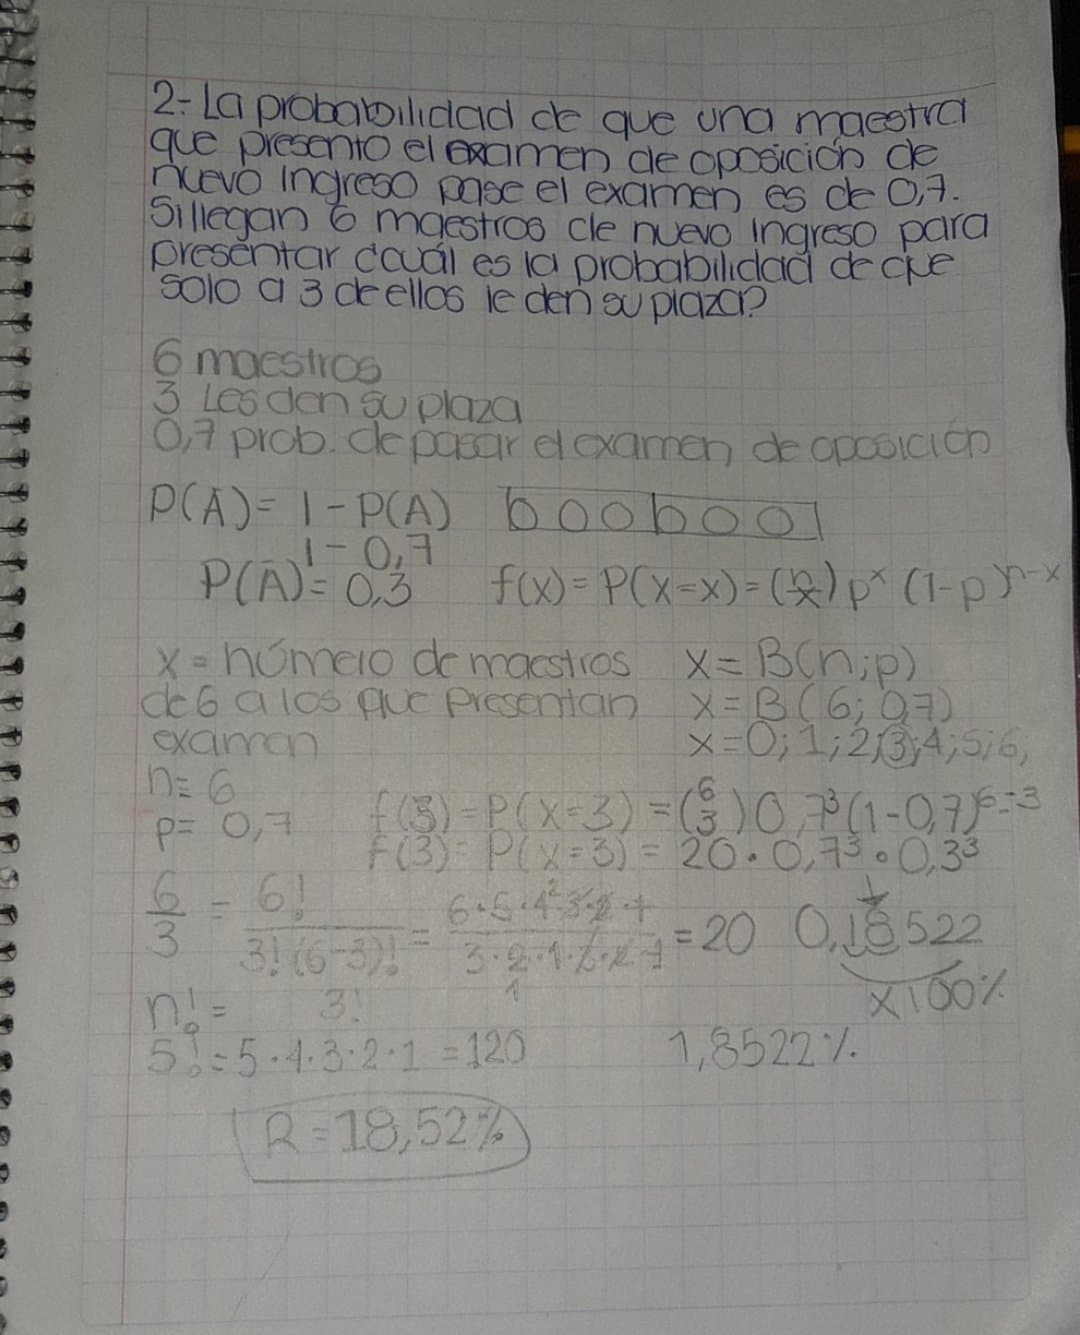 2.- La probabilidad de que una maestra
que presento el examen de oposición de
nuevo ingreso pase el examen es de 0,7.
Si llegan 6 maestros de nuevo ingreso para
presentar ¿cuál es la probabilidad de que
solo a 3 de ellos le den su plaza?
6 maestros
3 Les den su plaza
0,7 prob. de pasar el examen de oposición
P(Ā) = 1 - P(A)
1 - 0,7
P(Ā) = 0,3
f(x) = P(x=x) = (n x) p^x (1-p)^n-x
x = número de maestros
de 6 a los que presentan
examen
x = B(n;p)
x = B(6; 0,7)
x = 0; 1; 2; 3; 4; 5; 6;
n = 6
p = 0,7
f(3) = P(x=3) = (6 3) 0,7³ (1-0,7)^6-3
f(3) = P(x=3) = 20 · 0,7³ · 0,3³
6/3 = 6! / 3!(6-3)! = 6·5·4·3·2·1 / 3·2·1· = 20
3!
0,18522
x100%
n! =
5! = 5·4·3·2·1 = 120
1,8522%
R = 18,52%